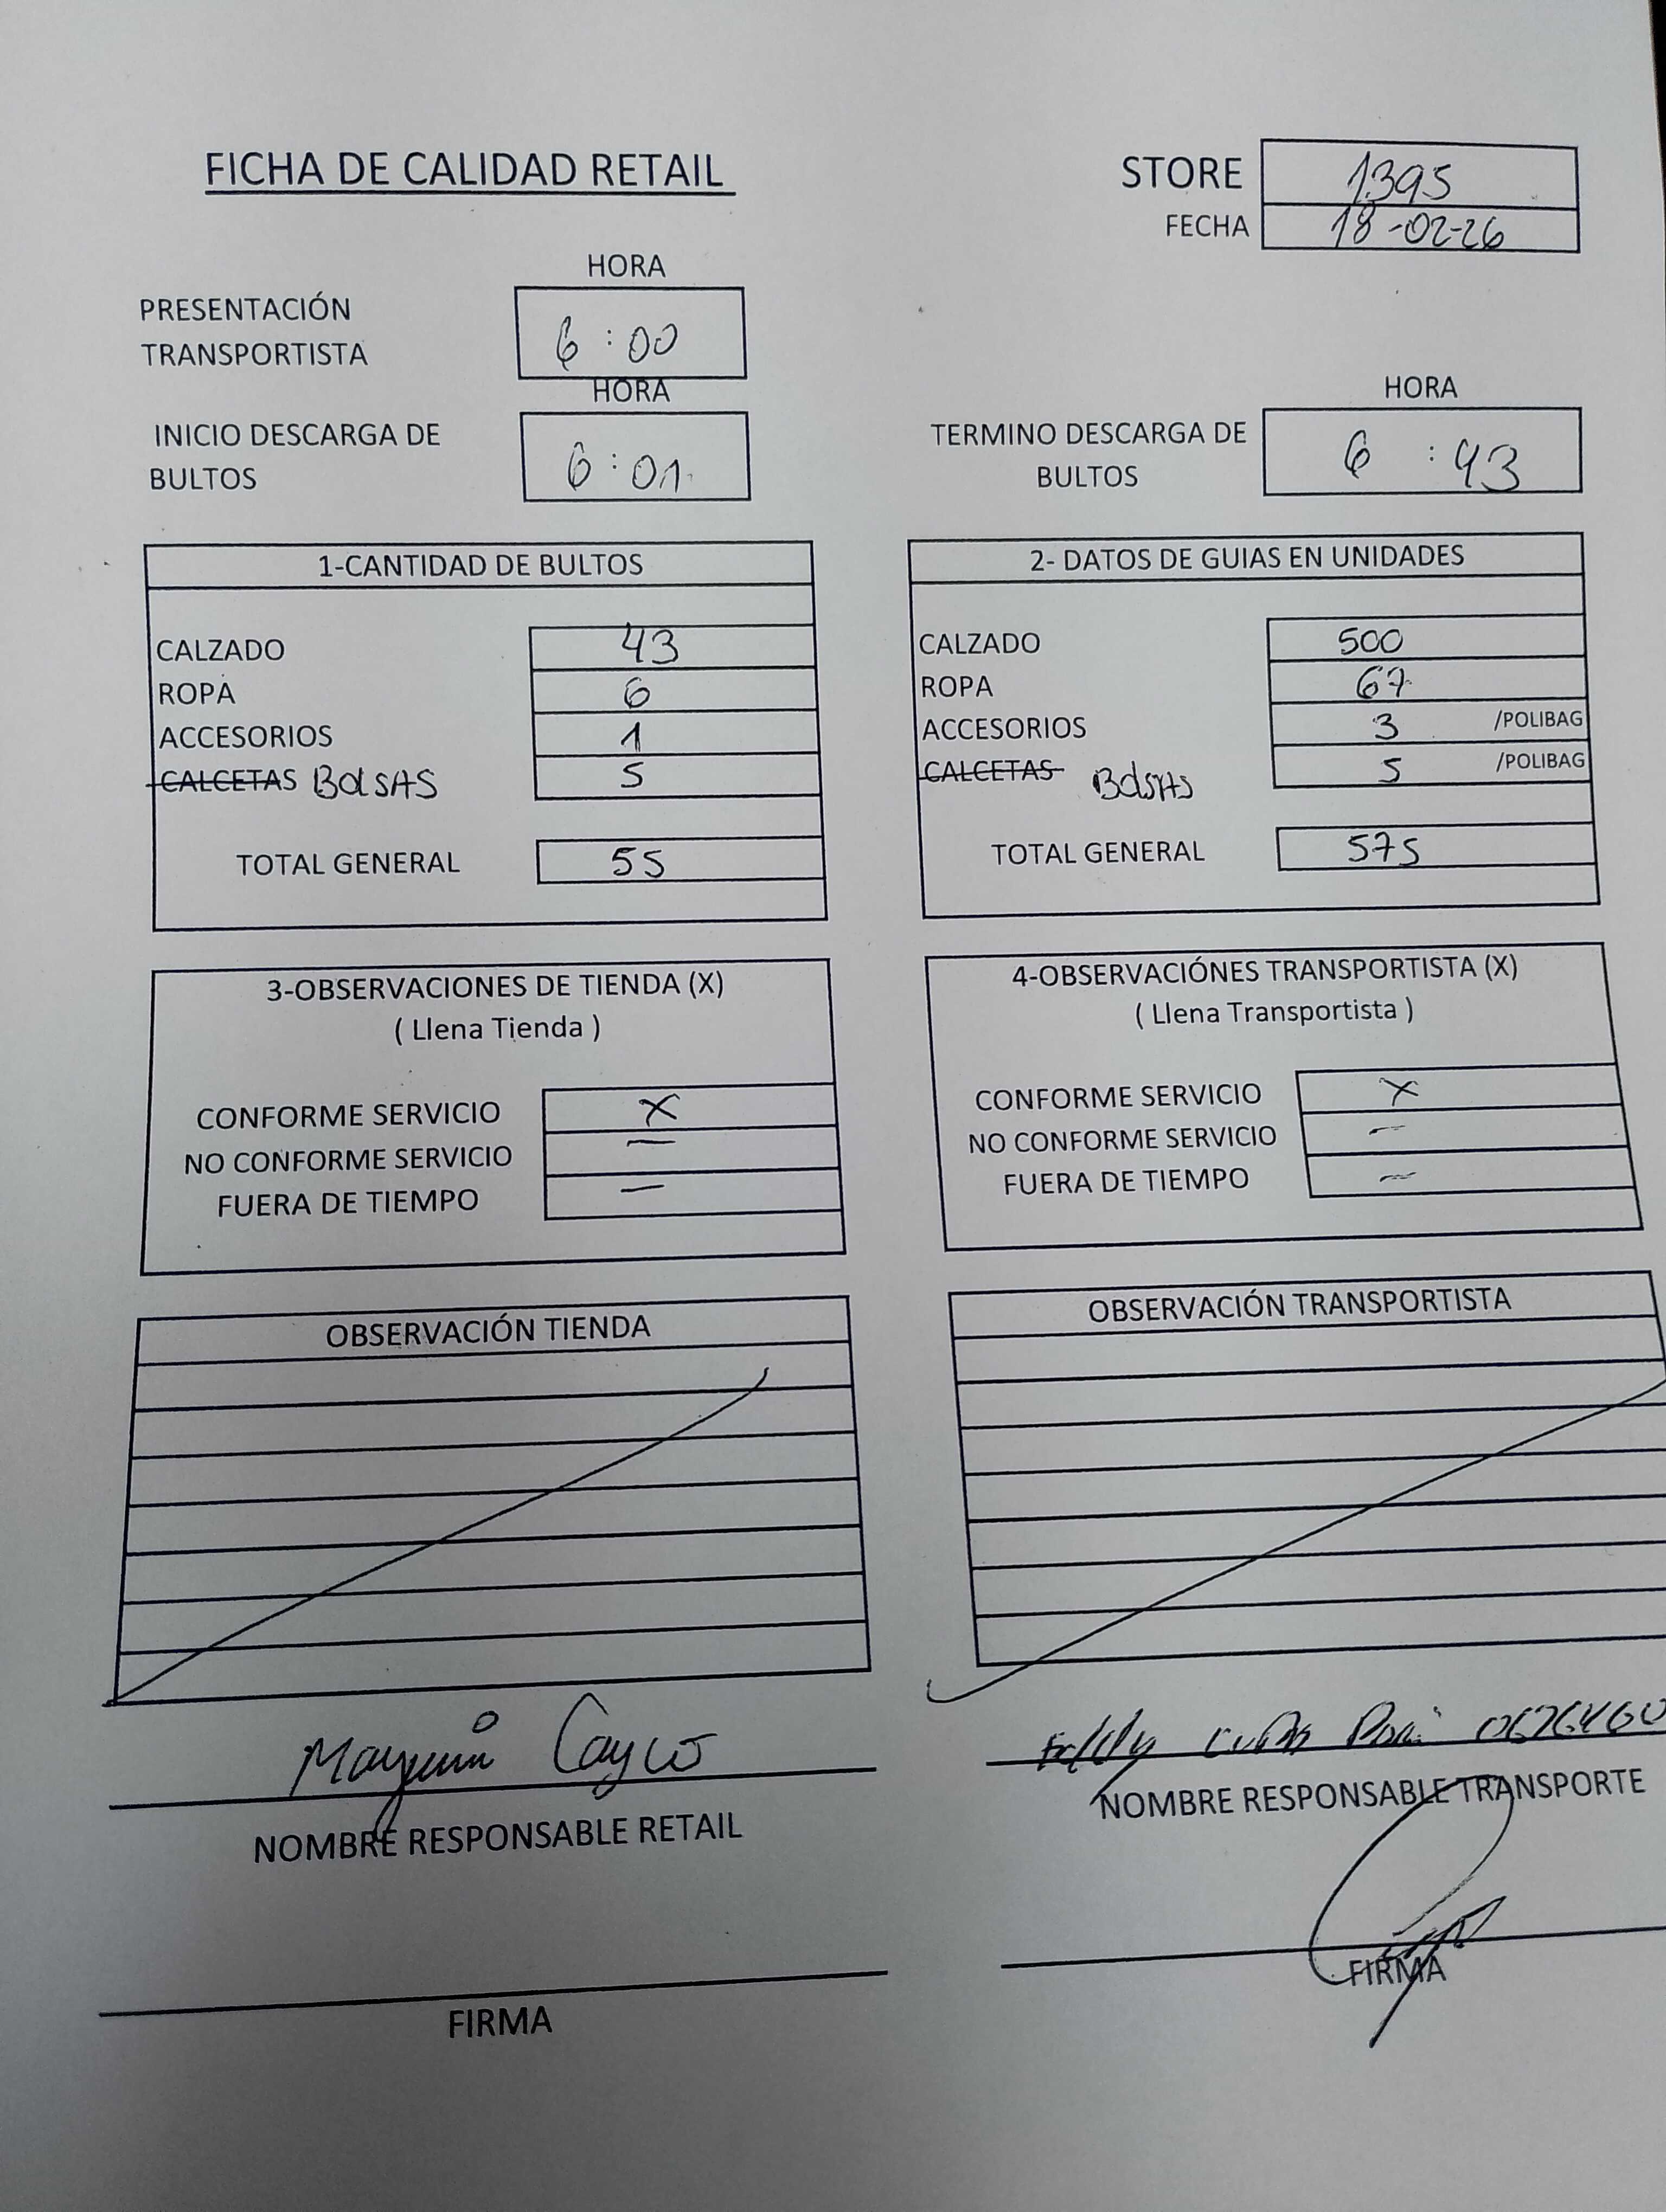 FICHA DE CALIDAD RETAIL
STORE 1395
FECHA 18-02-26
HORA
PRESENTACIÓN
TRANSPORTISTA
6:00
HORA
INICIO DESCARGA DE
BULTOS
6:01
HORA
TERMINO DESCARGA DE
BULTOS
6:43
1-CANTIDAD DE BULTOS
CALZADO 43
ROPA 6
ACCESORIOS 1
CALCETAS BOLSAS 5
TOTAL GENERAL 55
2- DATOS DE GUIAS EN UNIDADES
CALZADO 500
ROPA 67
ACCESORIOS 3 /POLIBAG
CALCETAS BOLSAS 5 /POLIBAG
TOTAL GENERAL 575
3-OBSERVACIONES DE TIENDA (X)
( Llena Tienda )
CONFORME SERVICIO X
NO CONFORME SERVICIO —
FUERA DE TIEMPO —
4-OBSERVACIÓNES TRANSPORTISTA (X)
( Llena Transportista )
CONFORME SERVICIO X
NO CONFORME SERVICIO —
FUERA DE TIEMPO —
OBSERVACIÓN TIENDA
OBSERVACIÓN TRANSPORTISTA
Cayco
NOMBRE RESPONSABLE RETAIL
FIRMA
NOMBRE RESPONSABLE TRANSPORTE
FIRMA